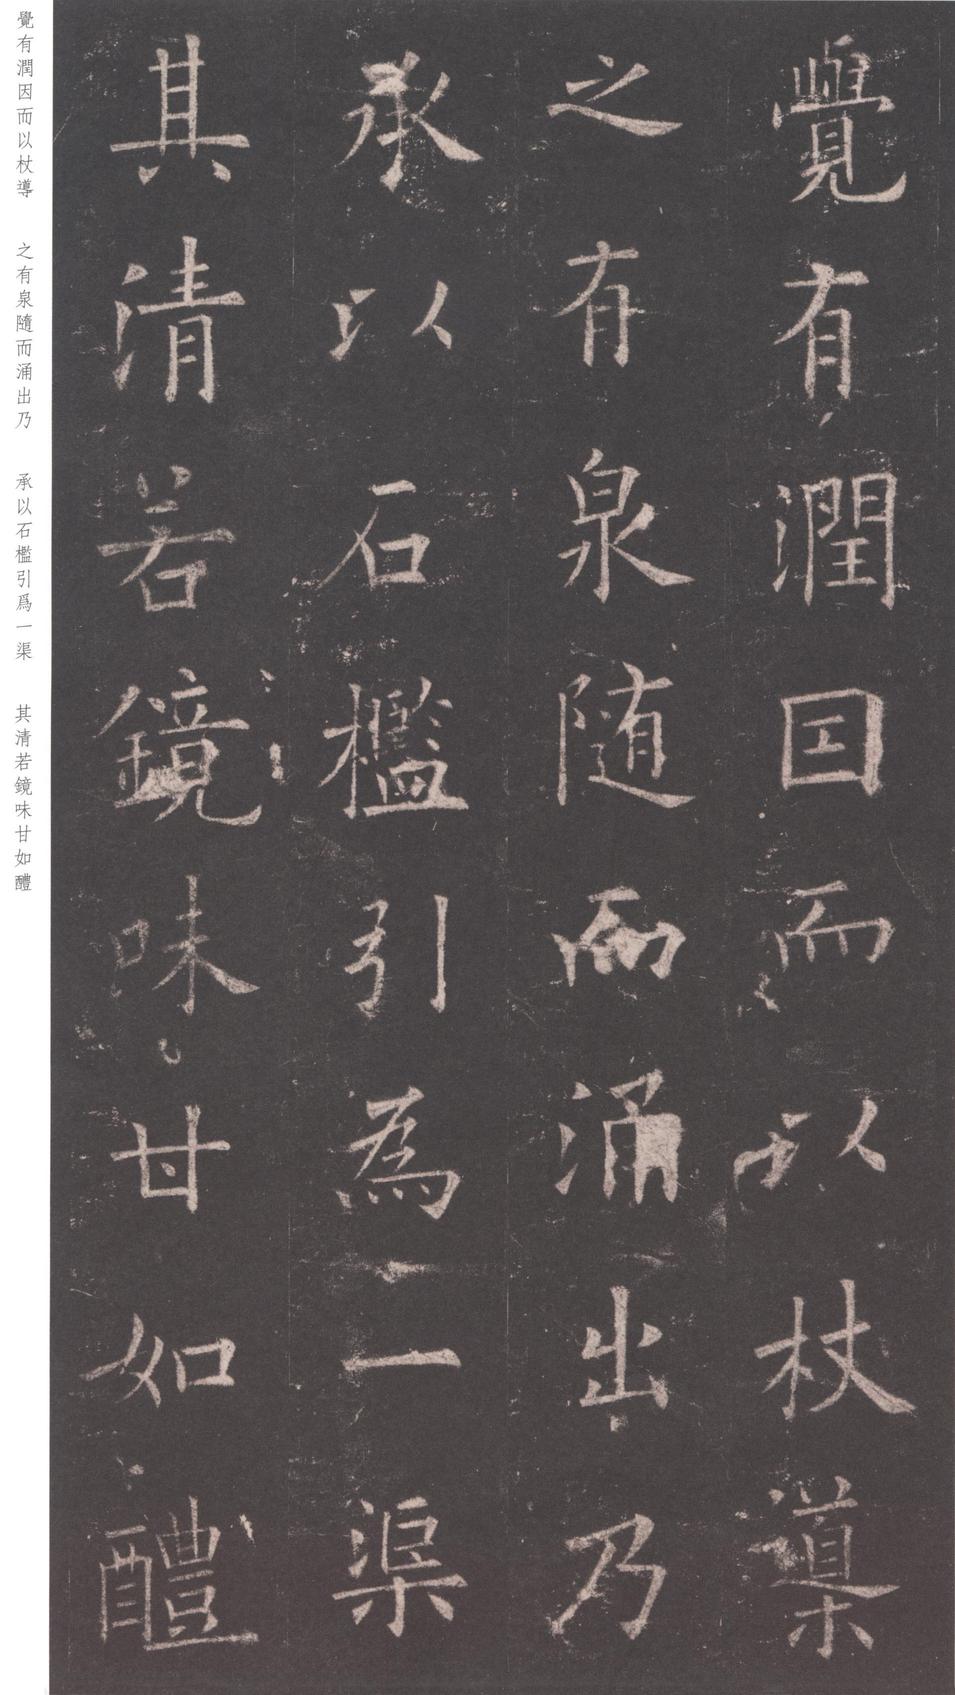 覺有潤囙而以杖導
之有泉随而涌出乃
承以石檻引為一渠
其清若鏡味甘如醴
覺有潤因而以杖導 之有泉隨而涌出乃 承以石檻引爲一渠 其清若鏡味甘如醴